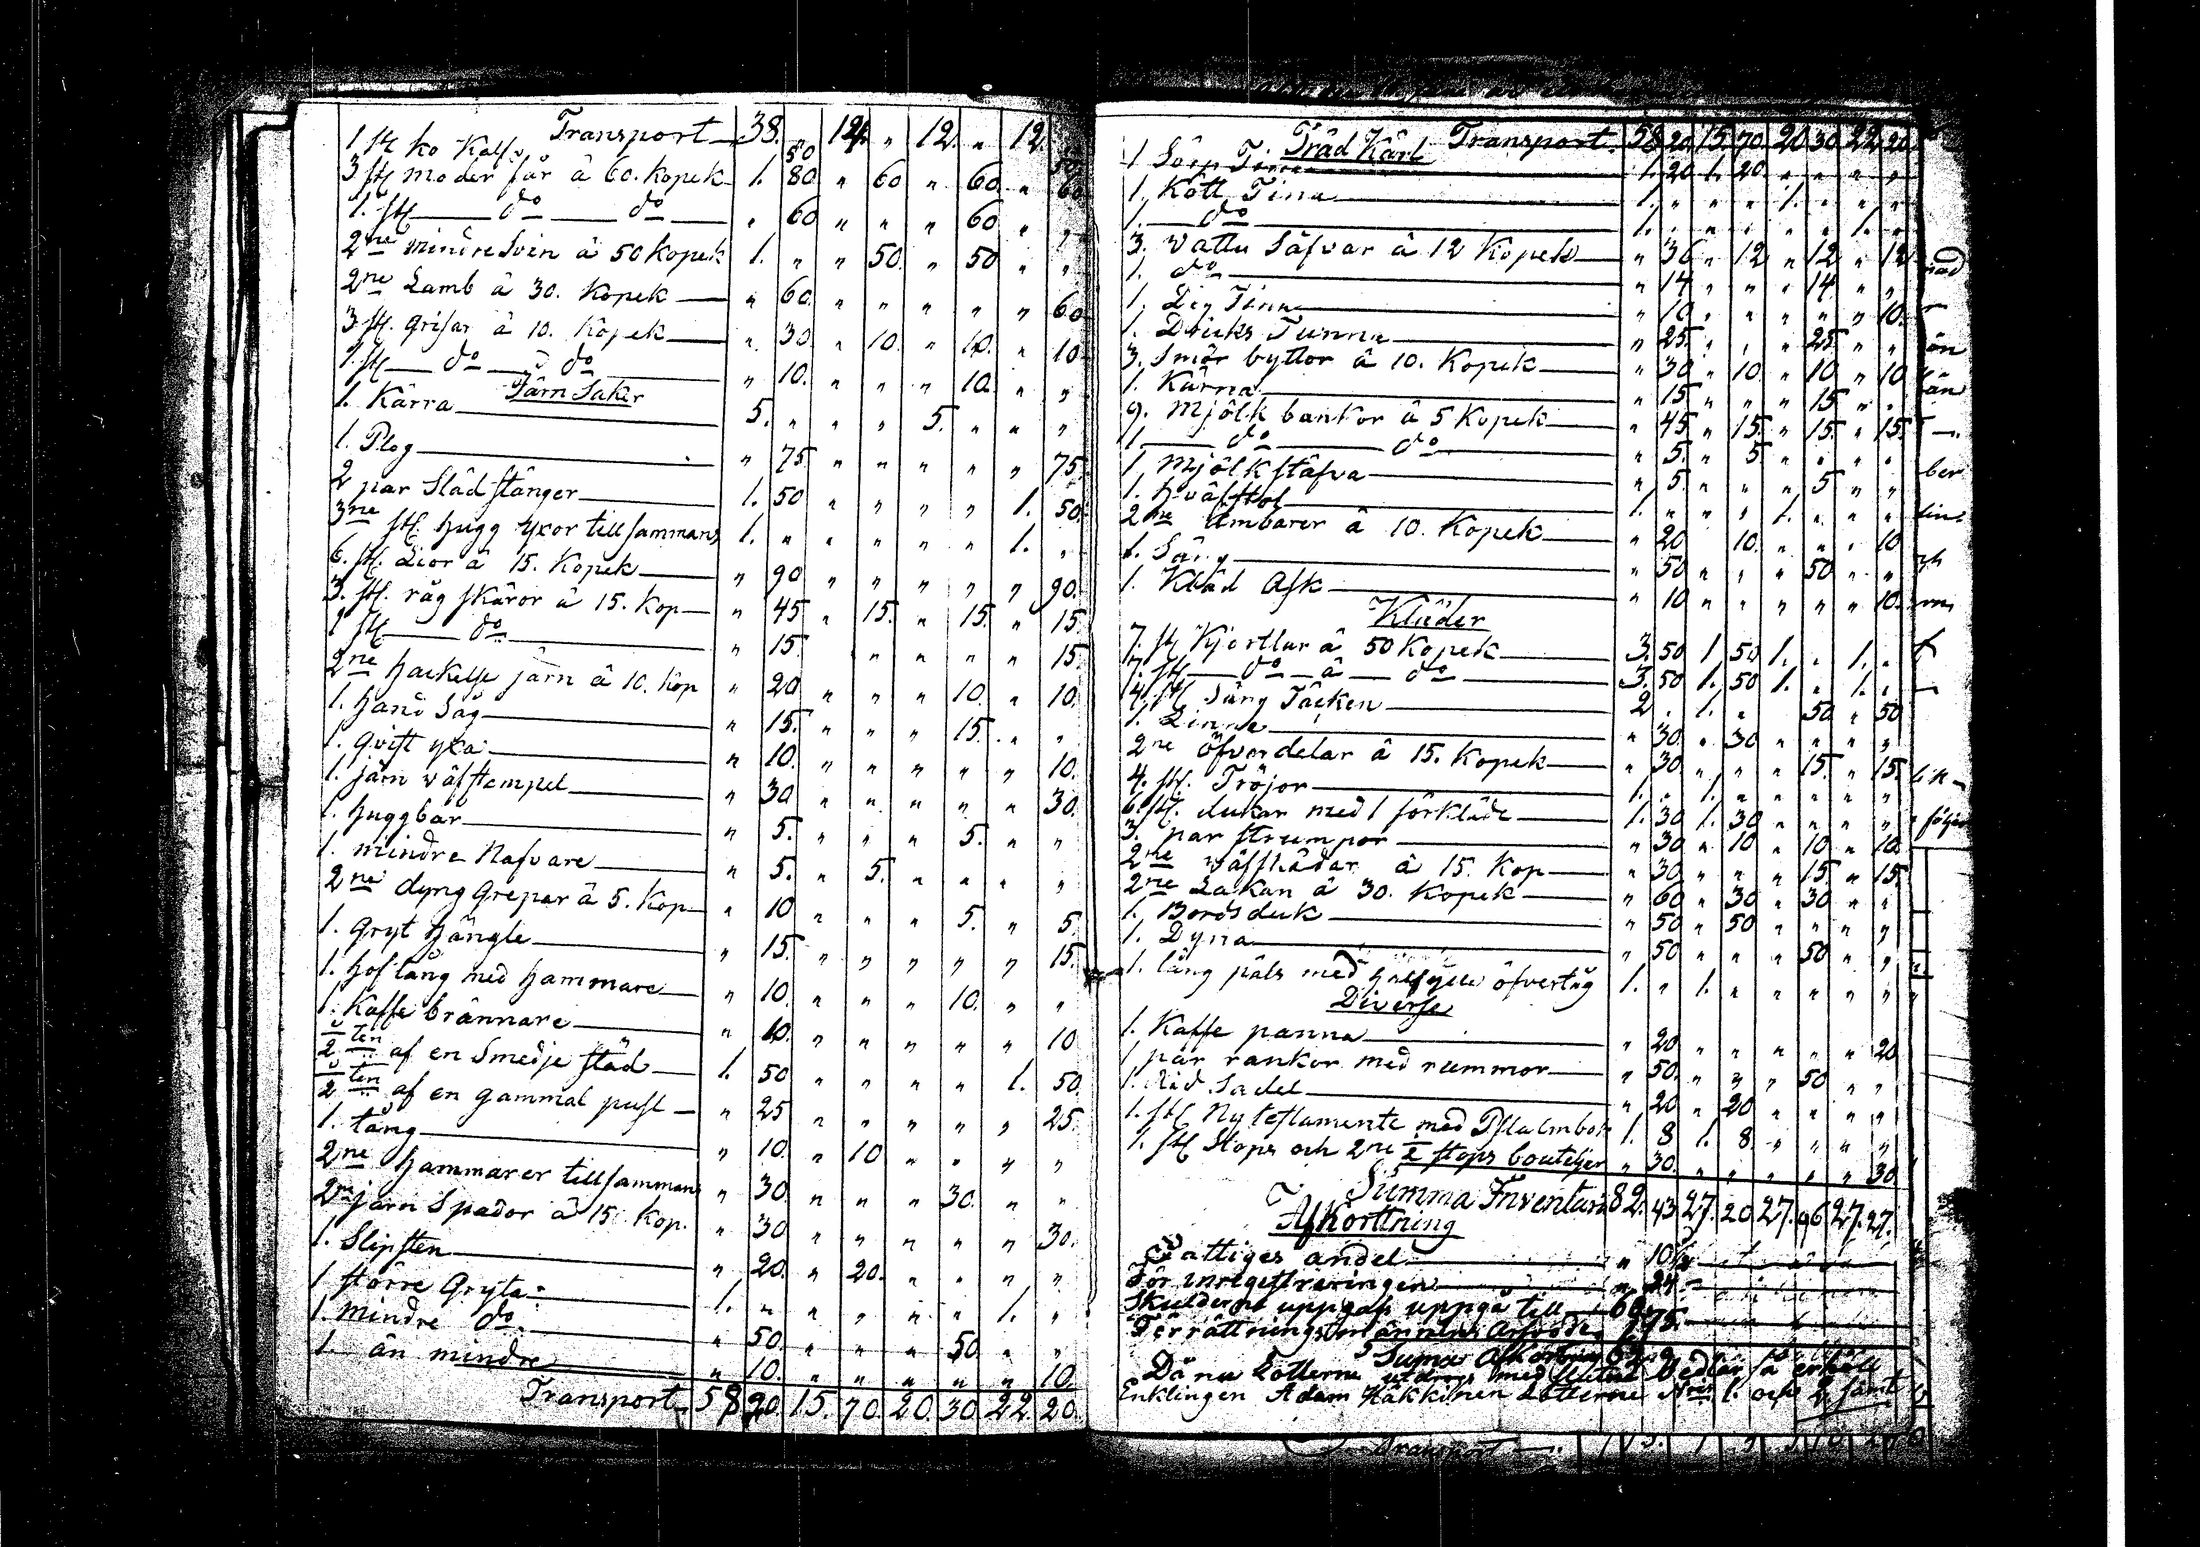 Transport 38. 12. " 12. " 12. "
1 st ko Kalf " 50 " " " " " 50
3 st moder får â 60. Kopek 1. 80 " 60 " 60 " 60
1. st do do " 60 " " " 60 " "
2ne mindre Svin â 50 Kopek 1. " " 50. " 50 " "
2ne Lamb â 30. Kopek " 60. " " " " " 60
3 st. grisar â 10. Kopek " 30 " 10. " 10. " 10
1. st do do " 10. " " " 10. " "
Järn Saker
1. Kärra 5. " " " 5. " " "
1. Plog " 75 " " " " " 75
2 par Släd stänger 1. 50 " " " " 1. 50.
3ne st. hugg yxor tillsammans 1. " " " " " 1. "
6. st. Lior â 15. Kopek " 90 " " " " " 90.
3. st. råg skäror â 15. Kop " 45 " 15. " 15. " 15
1 st do " 15. " " " " " 15.
2ne hackelse järn â 10. kop " 20 " " " 10. " 10.
1. hand Såg " 15. " " " 15. " "
1. qvist yxa " 10. " " " " " 10.
1. järn väfstempel " 30 " " " " " 30.
1. huggbar " 5. " " " 5. " "
1. mindre Nafvare " 5. " 5. " " " "
2ne dyng Grepar â 5. Kop " 10 " " " 5. " 5.
1. Gryt hängle " 15. " " " " " 15.
1. hof tång med hammare " 10. " " " 10. " "
1. Kaffe brännare " 10. " " " " " 10
2ten af en Smedje städ 1. 50 " " " " 1. 50.
2ten af en gammal pust " 25 " " " " " 25.
1. tång " 10. " 10 " " " "
2ne hammarer tillsammans " 30. " " " 30. " "
2ne järn Spador â 15. Kop. " 30 " " " " " 30.
1. Slipsten " 20. " 20. " " " "
1 större Gryta 1. " " " " " 1. "
1. mindre do " 50 " " " 50 " "
1. än mindre " 10. " " " " " 10.
Transport 58 20. 15. 70. 20. 30. 22. 20.
Träd Kärl Transport. 58 20 15. 70. 20 30 22 20
1 Sörp Tina 1. 20 1. 20. " " " "
1. Kött Tina 1. " " " 1. " " "
1. do 1. " " " " " 1. "
3. Vattu Säfvar â 12 Kopek " 36 " 12 " 12 " 12
1. do " 14 " " " 14 " "
1. Deg Tina " 10 " " " " " 10.
1. Dricks Tunna " 25. " " " 25 " "
3. Smör byttor â 10. Kopek " 30 " 10. " 10 " 10
1. Kärna " 15 " " " 15 " "
9. Mjölk bankor â 5 Kopek " 45 " 15. " 15. " 15.
1 do do " 5. " 5. " " " "
1. Mjölk stäfva " 5. " " " 5 " "
1. hväfstol 1. " " " 1. " " "
2ne Ämbarer â 10. Kopek " 20 10. " " " 10
1. Säng " 50 " " " 50 " "
1. Kläd Ask " 10 " " " " " 10.
Kläder
7. st Kjortlar â 50 Kopek 3. 50 1 50 1. " 1. "
7. st do â do 3. 50 1. 50 1. " 1. "
4. st Säng Täcken 2 " 1. " 50 " 50
1. Linne " 30. " 30 " " " "
2ne öfverdelar â 15. Kopek " 30 " " " 15. " 15.
4. st. Tröjor 1. " 1. " " " " "
6. st. dukar med 1 förkläde 1. 30 1. 30 " " " "
3. par strumpor " 30 " 10 " 10 " 10
2ne Väfskädar â 15. Kop " 30 " " " 15 " 15.
2ne Lakan â 30. Kopek " 60 " 30 " 30 " "
1. Bordsduk " 50 " 50 " " " "
1. Dyna " 50 " " " 50 " "
1. lång päls med öfvertåg 1. " 1. " " " " "
Diverse
1. Kaffe panna " 20 " " " " " 20
1 par rankor med remmor " 50. " " " 50 " "
1. Rid Sadel " 20 " 20 " " " "
1. st Ny testamente med Psalmbok 1. 8 1. 8. " " " "
1. st Stops och 2ne ½ stops bouteljer " 30. " " " " " 30.
Summa Inventari 82. 43 27. 20 27. 96 27. 27.
Afkorttning
Fattiges andel " 10
För inregistreringen " 24
Skulderne uppgåfs uppgå till 60.
Förrättningsmännens Arfvode 1 75.
Suma Afkortning 62. 9
Då nu Lotterne utdrogs med Slutna Sedlar så erhöll
Enklingen Adam Häkkinen Lotterne Nris 1. och 2 samt